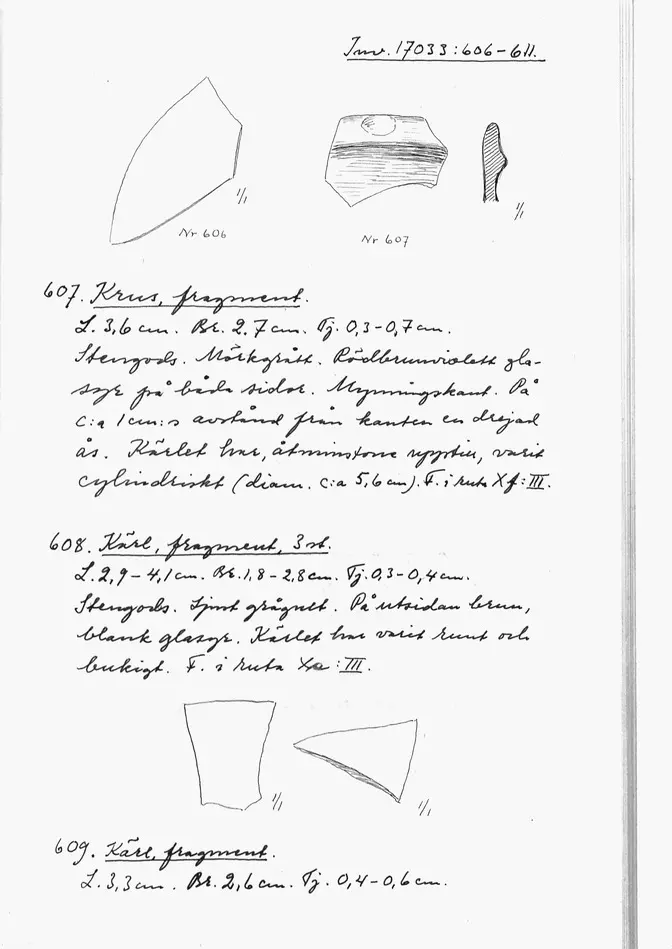 Inv. 17033:606–611.
1/1
Nr 606
Nr 607
1/1
607. Krus, fragment.
L. 3,6 cm. Br. 2,7 cm. Tj. 0,3–0,7 cm.
Stengods. Mörkgrått. Rödbrunviolett gla-
syr på båda sidor. Mynningskant. På
c:a 1 cm:s avstånd från kanten en drejad
ås. Kärlet har, åtminstone upptill, varit
cylindriskt (diam. c:a 5,6 cm). F. i ruta Xf:III.
608. Kärl, fragment, 3 st.
L. 2,9–4,1 cm. Br. 1,8–2,8 cm. Tj. 0,3–0,4 cm.
Stengods. Ljust grågult. På utsidan brun,
blank glasyr. Kärlet har varit runt och
bukigt. F. i ruta :III.
1/1
1/1
609. Kärl, fragment.
L. 3,3 cm. Br. 2,6 cm. Tj. 0,4–0,6 cm.